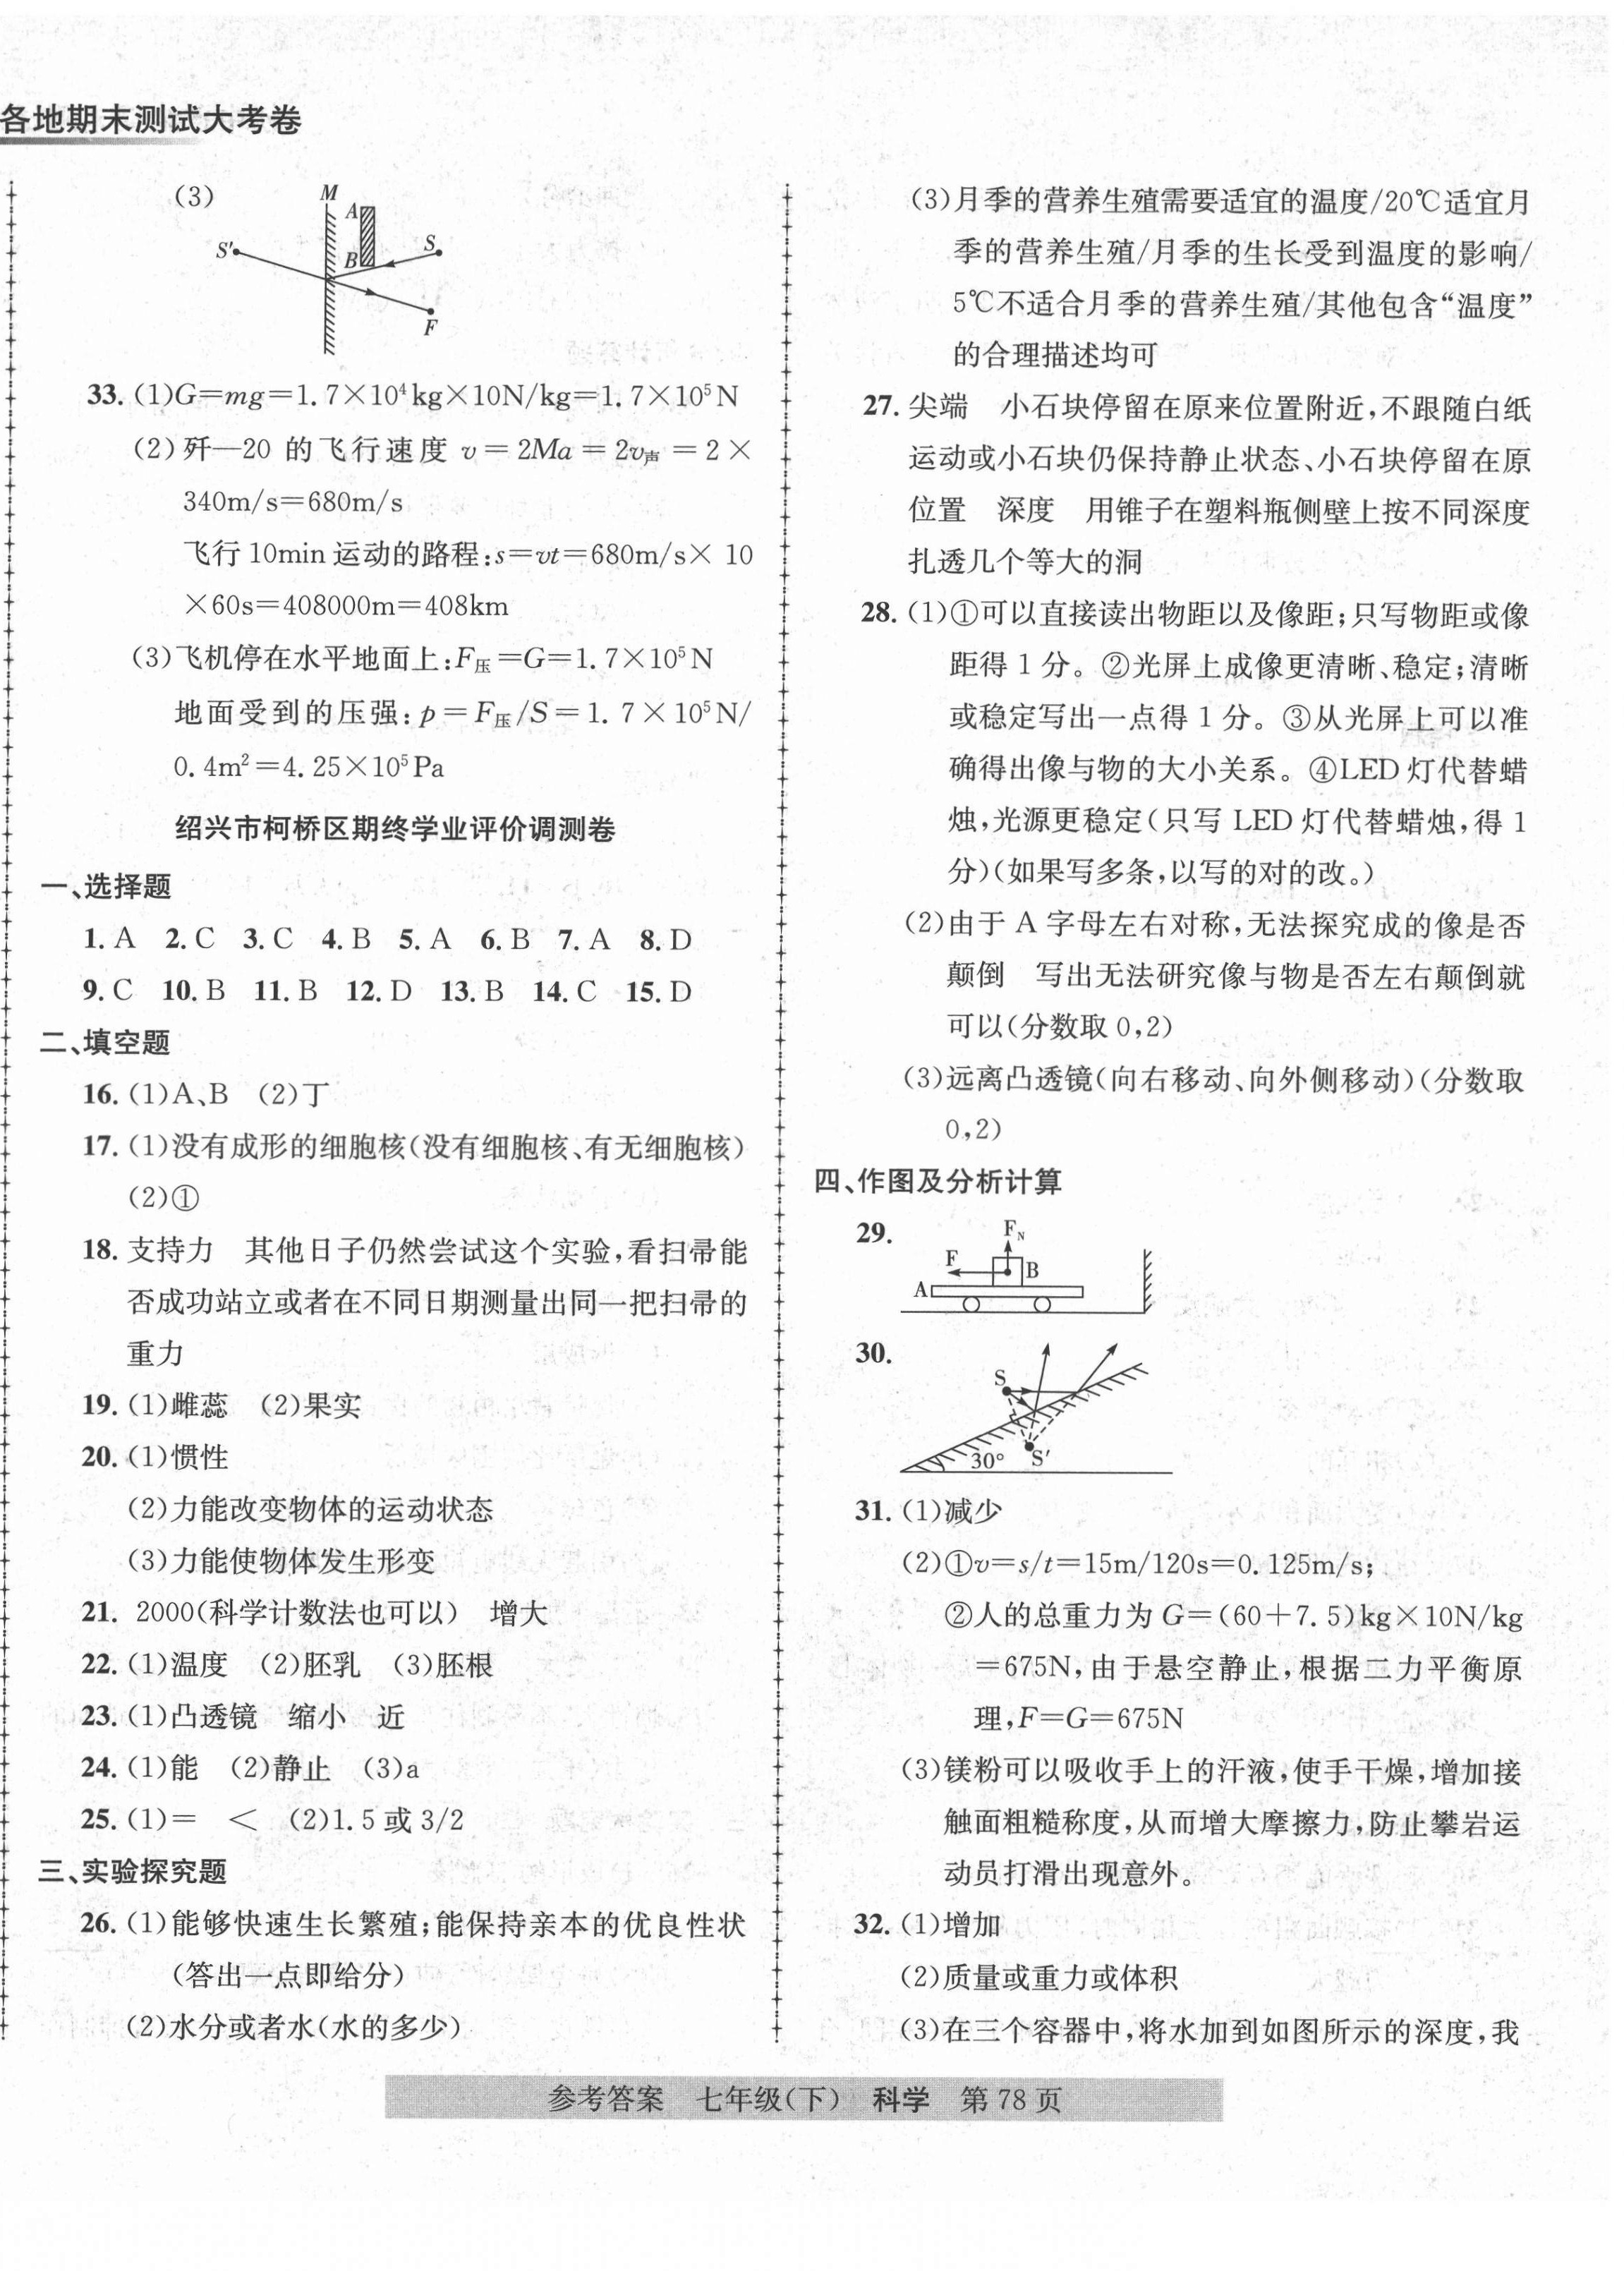 各地期末测试大考卷
(3)
M
A
S′
S
B
F
33. (1)G=mg=1.7×10⁴kg×10N/kg=1.7×10⁵N
(2)歼—20 的飞行速度 v=2Ma=2v声=2×
340m/s=680m/s
飞行10min运动的路程:s=vt=680m/s×10
×60s=408000m=408km
(3)飞机停在水平地面上:F压=G=1.7×10⁵N
地面受到的压强:p=F压/S=1.7×10⁵N/
0.4m²=4.25×10⁵Pa
绍兴市柯桥区期终学业评价调测卷
一、选择题
1. A 2. C 3. C 4. B 5. A 6. B 7. A 8. D
9. C 10. B 11. B 12. D 13. B 14. C 15. D
二、填空题
16. (1)A、B (2)丁
17. (1)没有成形的细胞核(没有细胞核、有无细胞核)
(2)①
18. 支持力 其他日子仍然尝试这个实验,看扫帚能
否成功站立或者在不同日期测量出同一把扫帚的
重力
19. (1)雌蕊 (2)果实
20. (1)惯性
(2)力能改变物体的运动状态
(3)力能使物体发生形变
21. 2000(科学计数法也可以) 增大
22. (1)温度 (2)胚乳 (3)胚根
23. (1)凸透镜 缩小 近
24. (1)能 (2)静止 (3)a
25. (1)= < (2)1.5或3/2
三、实验探究题
26. (1)能够快速生长繁殖;能保持亲本的优良性状
(答出一点即给分)
(2)水分或者水(水的多少)
(3)月季的营养生殖需要适宜的温度/20℃适宜月
季的营养生殖/月季的生长受到温度的影响/
5℃不适合月季的营养生殖/其他包含“温度”
的合理描述均可
27. 尖端 小石块停留在原来位置附近,不跟随白纸
运动或小石块仍保持静止状态、小石块停留在原
位置 深度 用锥子在塑料瓶侧壁上按不同深度
扎透几个等大的洞
28. (1)①可以直接读出物距以及像距;只写物距或像
距得1分。②光屏上成像更清晰、稳定;清晰
或稳定写出一点得1分。③从光屏上可以准
确得出像与物的大小关系。④LED灯代替蜡
烛,光源更稳定(只写LED灯代替蜡烛,得1
分)(如果写多条,以写的对的改。)
(2)由于A字母左右对称,无法探究成的像是否
颠倒 写出无法研究像与物是否左右颠倒就
可以(分数取0,2)
(3)远离凸透镜(向右移动、向外侧移动)(分数取
0,2)
四、作图及分析计算
29.
F_N
F
B
A
30.
S
30° S′
31. (1)减少
(2)①v=s/t=15m/120s=0.125m/s;
②人的总重力为G=(60+7.5)kg×10N/kg
=675N,由于悬空静止,根据二力平衡原
理,F=G=675N
(3)镁粉可以吸收手上的汗液,使手干燥,增加接
触面粗糙称度,从而增大摩擦力,防止攀岩运
动员打滑出现意外。
32. (1)增加
(2)质量或重力或体积
(3)在三个容器中,将水加到如图所示的深度,我
参考答案 七年级(下) 科学 第78页